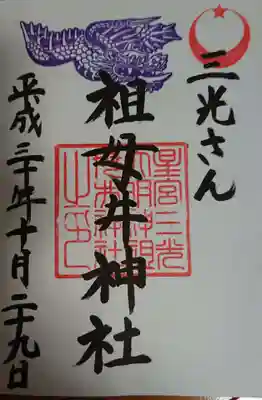 三光さん
祖母井神社
平成三十年十月二十九日
星宮三光
大明神祖
母井神社
之印